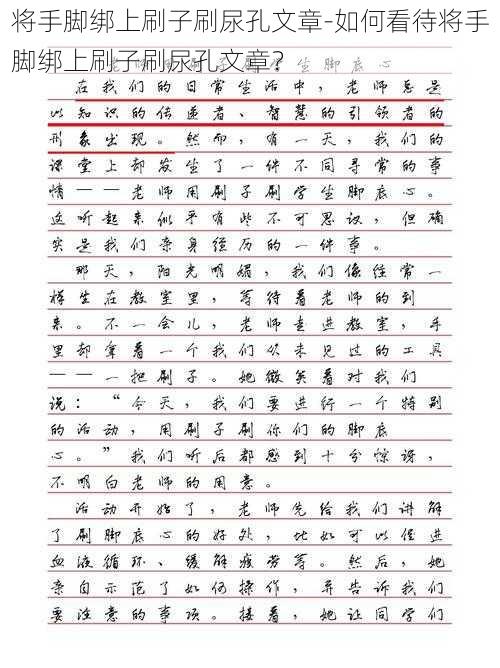 将手脚绑上刷子刷尿孔文章-如何看待将手
脚绑上刷子刷尿孔文章？
在我们的日常生活中，老师总是
以知识的传递者、智慧的引领者的
形象出现。然而，有一天，我们的
课堂上却发生了一件不同寻常的事
情——老师用刷子刷学生脚底心。
这听起来似乎有些不可思议，但确
实是我们亲身经历的一件事。
那天，阳光明媚，我们像往常一
样坐在教室里，等待着老师的到
来。不一会儿，老师走进教室，手
里却拿着一个我们从未见过的工具
——一把刷子。她微笑着对我们
说：“今天，我们要进行一个特别
的活动，用刷子刷你们的脚底
心。”我们听后都感到十分惊讶，
不明白老师的用意。
活动开始了，老师先给我们讲解
了刷脚底心的好处，比如可以促进
血液循环、缓解疲劳等。然后，她
亲自示范了如何操作，并告诉我们
要注意的事项。接着，她让同学们